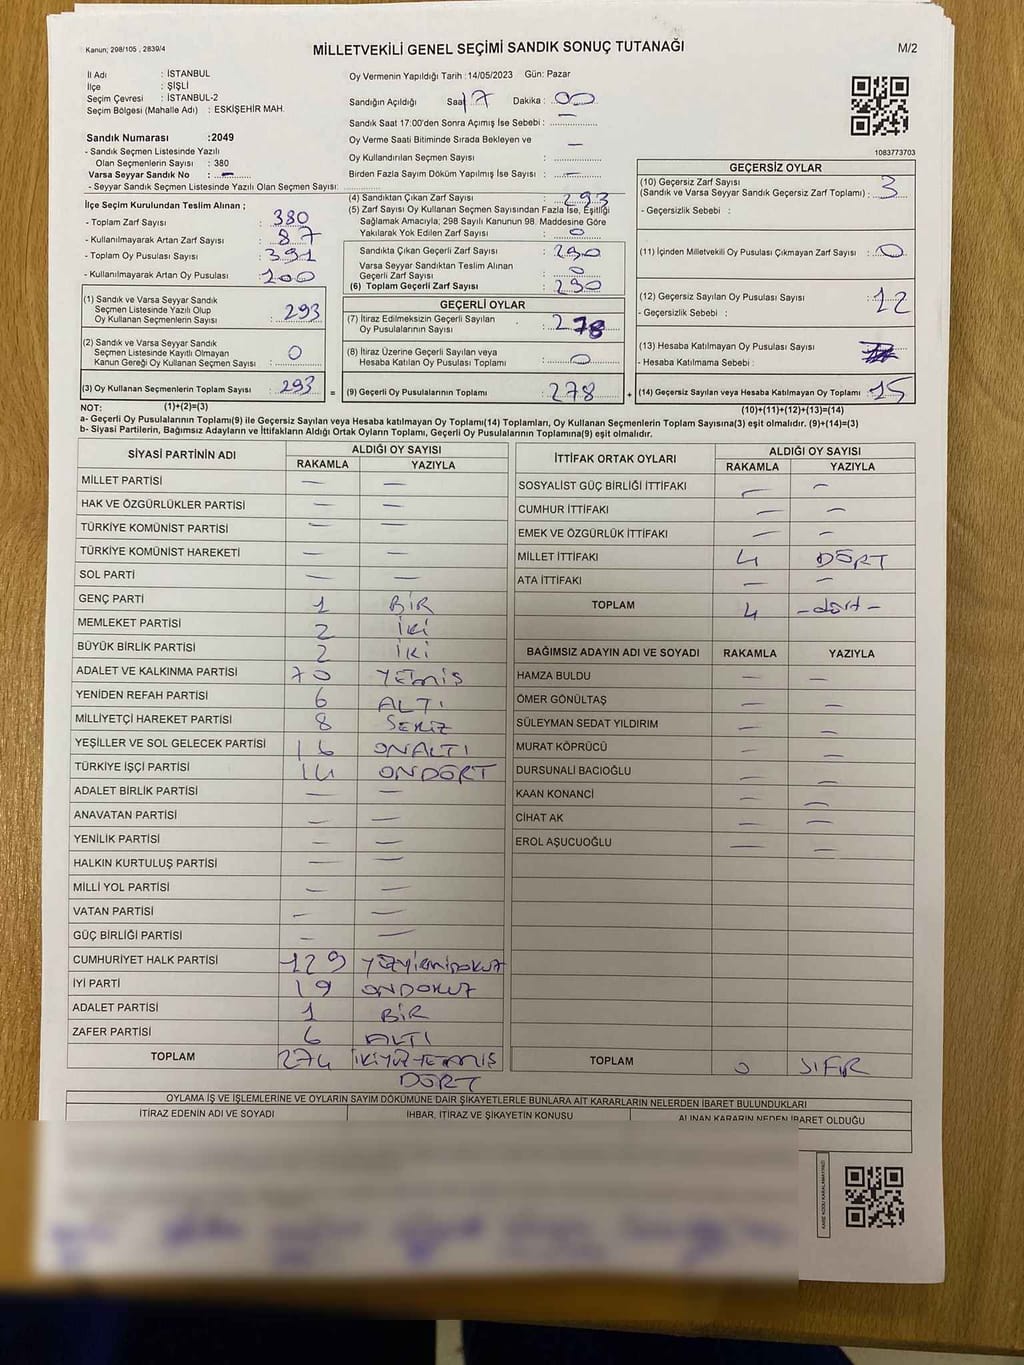 Kanun; 298/105 , 2839/4
MİLLETVEKİLİ GENEL SEÇİMİ SANDIK SONUÇ TUTANAĞI
M/2
İl Adı : İSTANBUL
İlçe : ŞİŞLİ
Seçim Çevresi : İSTANBUL-2
Seçim Bölgesi (Mahalle Adı) : ESKİŞEHİR MAH.
Sandık Numarası :2049
- Sandık Seçmen Listesinde Yazılı
Olan Seçmenlerin Sayısı : 380
Varsa Seyyar Sandık No : –
- Seyyar Sandık Seçmen Listesinde Yazılı Olan Seçmen Sayısı:
İlçe Seçim Kurulundan Teslim Alınan ;
- Toplam Zarf Sayısı : 380
- Kullanılmayarak Artan Zarf Sayısı : 87
- Toplam Oy Pusulası Sayısı : 391
- Kullanılmayarak Artan Oy Pusulası : 100
(1) Sandık ve Varsa Seyyar Sandık
Seçmen Listesinde Yazılı Olup
Oy Kullanan Seçmenlerin Sayısı : 293
(2) Sandık ve Varsa Seyyar Sandık
Seçmen Listesinde Kayıtlı Olmayan
Kanun Gereği Oy Kullanan Seçmen Sayısı : 0
(3) Oy Kullanan Seçmenlerin Toplam Sayısı : 293 =
Oy Vermenin Yapıldığı Tarih :14/05/2023 Gün: Pazar
Sandığın Açıldığı Saat 17 Dakika : 00
Sandık Saat 17:00'den Sonra Açımış İse Sebebi : –
Oy Verme Saati Bitiminde Sırada Bekleyen ve
Oy Kullandırılan Seçmen Sayısı : –
Birden Fazla Sayım Döküm Yapılmış İse Sayısı : –
(4) Sandıktan Çıkan Zarf Sayısı : 293
(5) Zarf Sayısı Oy Kullanan Seçmen Sayısından Fazla İse, Eşitliği
Sağlamak Amacıyla; 298 Sayılı Kanunun 98. Maddesine Göre
Yakılarak Yok Edilen Zarf Sayısı : 0
Sandıkta Çıkan Geçerli Zarf Sayısı : 290
Varsa Seyyar Sandıktan Teslim Alınan
Geçerli Zarf Sayısı : 0
(6) Toplam Geçerli Zarf Sayısı : 290
GEÇERLİ OYLAR
(7) İtiraz Edilmeksizin Geçerli Sayılan
Oy Pusulalarının Sayısı : 278
(8) İtiraz Üzerine Geçerli Sayılan veya
Hesaba Katılan Oy Pusulaları Toplamı : 0
(9) Geçerli Oy Pusulalarının Toplamı : 278 +
1083773703
GEÇERSİZ OYLAR
(10) Geçersiz Zarf Sayısı
(Sandık ve Varsa Seyyar Sandık Geçersiz Zarf Toplamı) : 3
- Geçersizlik Sebebi :
(11) İçinden Milletvekili Oy Pusulası Çıkmayan Zarf Sayısı : 0
(12) Geçersiz Sayılan Oy Pusulası Sayısı : 12
- Geçersizlik Sebebi :
(13) Hesaba Katılmayan Oy Pusulası Sayısı
- Hesaba Katılmama Sebebi :
(14) Geçersiz Sayılan veya Hesaba Katılmayan Oy Toplamı : 15
NOT: (1)+(2)=(3) (10)+(11)+(12)+(13)=(14)
a- Geçerli Oy Pusulalarının Toplamı(9) ile Geçersiz Sayılan veya Hesaba katılmayan Oy Toplamı(14) Toplamları, Oy Kullanan Seçmenlerin Toplam Sayısına(3) eşit olmalıdır. (9)+(14)=(3)
b- Siyasi Partilerin, Bağımsız Adayların ve İttifakların Aldığı Ortak Oyların Toplamı, Geçerli Oy Pusulalarının Toplamına(9) eşit olmalıdır.
SİYASİ PARTİNİN ADI ALDIĞI OY SAYISI
RAKAMLA YAZIYLA
MİLLET PARTİSİ – –
HAK VE ÖZGÜRLÜKLER PARTİSİ – –
TÜRKİYE KOMÜNİST PARTİSİ – –
TÜRKİYE KOMÜNİST HAREKETİ – –
SOL PARTİ – –
GENÇ PARTİ 1 BİR
MEMLEKET PARTİSİ 2 İKİ
BÜYÜK BİRLİK PARTİSİ 2 İKİ
ADALET VE KALKINMA PARTİSİ 70 YETMİŞ
YENİDEN REFAH PARTİSİ 6 ALTI
MİLLİYETÇİ HAREKET PARTİSİ 8 SEKİZ
YEŞİLLER VE SOL GELECEK PARTİSİ 16 ONALTI
TÜRKİYE İŞÇİ PARTİSİ 14 ONDÖRT
ADALET BİRLİK PARTİSİ – –
ANAVATAN PARTİSİ – –
YENİLİK PARTİSİ – –
HALKIN KURTULUŞ PARTİSİ – –
MİLLİ YOL PARTİSİ – –
VATAN PARTİSİ – –
GÜÇ BİRLİĞİ PARTİSİ – –
CUMHURİYET HALK PARTİSİ 129 YÜZYİRMİDOKUZ
İYİ PARTİ 19 ONDOKUZ
ADALET PARTİSİ 1 BİR
ZAFER PARTİSİ 6 ALTI
TOPLAM 274 İKİYÜZYETMİŞ
DÖRT
İTTİFAK ORTAK OYLARI ALDIĞI OY SAYISI
RAKAMLA YAZIYLA
SOSYALİST GÜÇ BİRLİĞİ İTTİFAKI – –
CUMHUR İTTİFAKI – –
EMEK VE ÖZGÜRLÜK İTTİFAKI – –
MİLLET İTTİFAKI 4 DÖRT
ATA İTTİFAKI – –
TOPLAM 4 -dört-
BAĞIMSIZ ADAYIN ADI VE SOYADI RAKAMLA YAZIYLA
HAMZA BULDU – –
ÖMER GÖNÜLTAŞ – –
SÜLEYMAN SEDAT YILDIRIM – –
MURAT KÖPRÜCÜ – –
DURSUNALİ BACIOĞLU – –
KAAN KONANCİ – –
CİHAT AK – –
EROL AŞUCUOĞLU – –
TOPLAM 0 SIFIR
OYLAMA İŞ VE İŞLEMLERİNE VE OYLARIN SAYIM DÖKÜMÜNE DAİR ŞİKAYETLERLE BUNLARA AİT KARARLARIN NELERDEN İBARET BULUNDUKLARI
İTİRAZ EDENİN ADI VE SOYADI İHBAR, İTİRAZ VE ŞİKAYETİN KONUSU ALINAN KARARIN NEDEN İBARET OLDUĞU